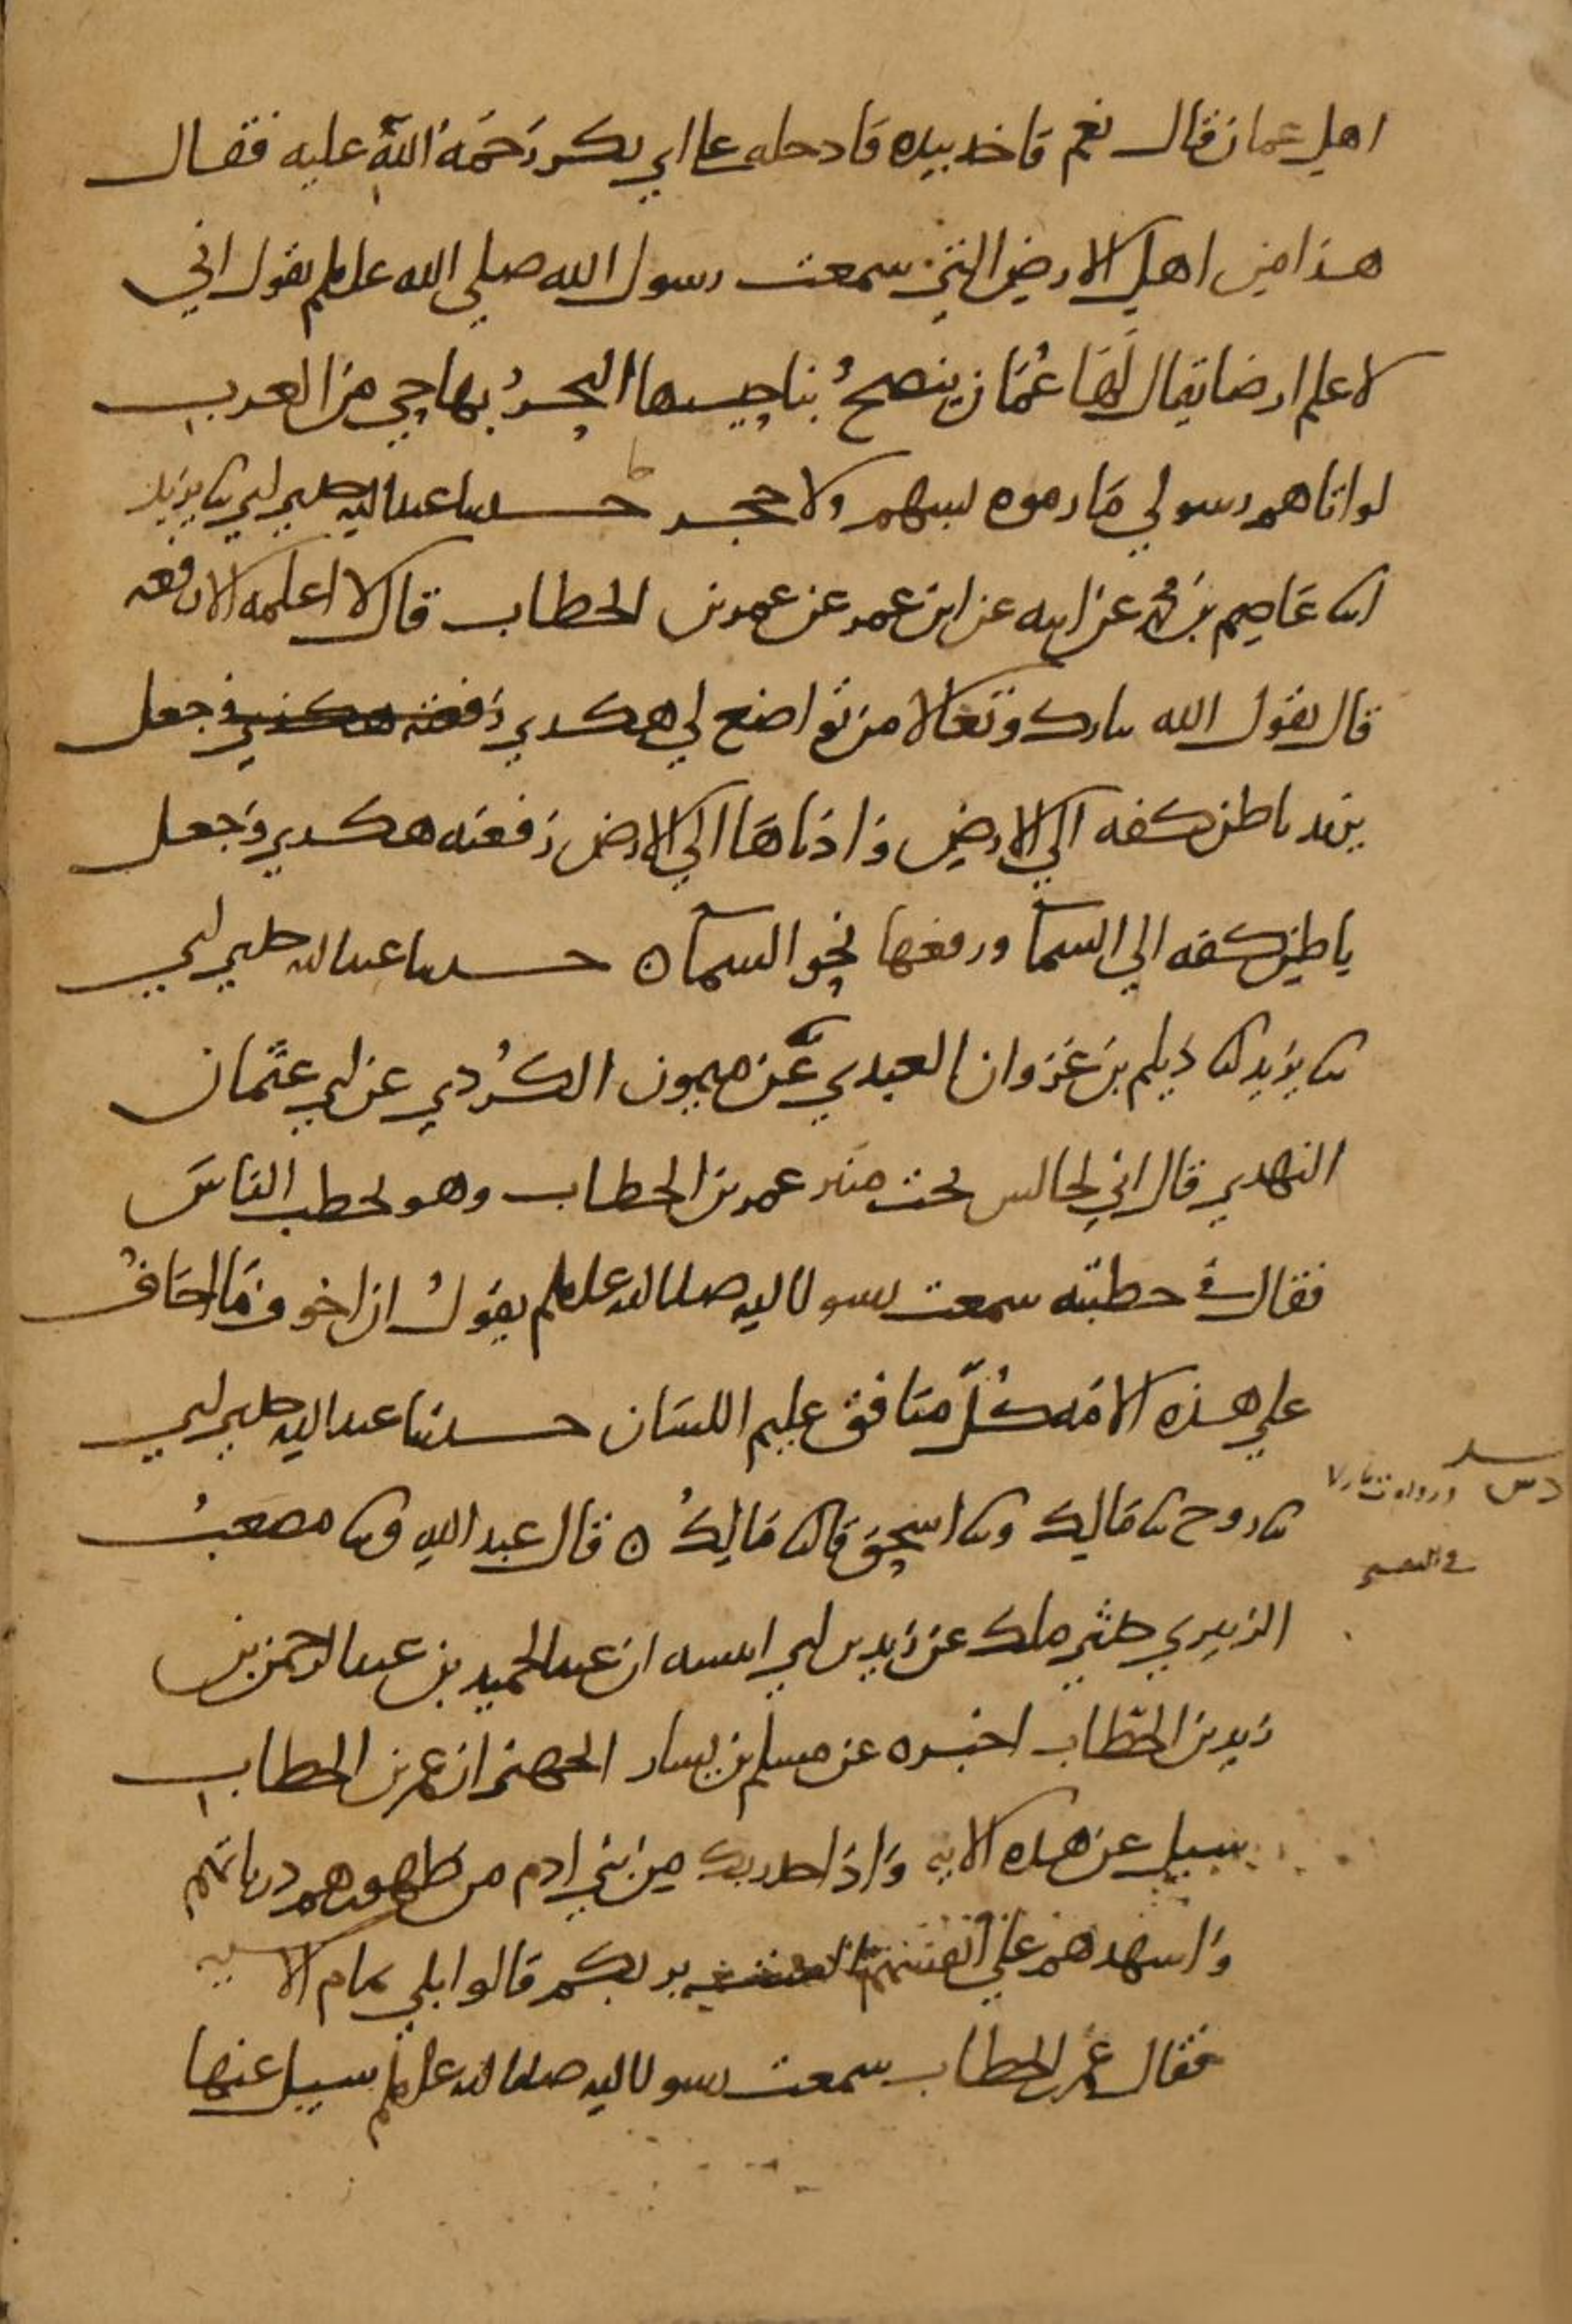 اهل عمان قال نعم فاخذ بيده فادخله على ابي بكر رَحمَة اللهِ عليه فقال
هذا من اهل الارض التي سمعت رسول الله صلى الله علىه وسلم يقول اني
لاعلم ارضا يقال لَهَا عُمَان ينضحُ بناحيتها البحرُ بها حي من العرب
لو اتاهم رسولي مَا رموه بسهم ولا حجر حدثنا عبد الله حدثني ابي ثنا يزيد
انا عَاصِم بن محمد عن ابيه عن ابن عمر عن عمر بن الخطاب قال لا اعلمه الا رفعه
قال يقول الله تبارك وتعالا من تواضع لي هكدي رَفعته هكذي وجعل
يزيد باطن كفه الي الارض وَادناهَا الي الارض رَفعته هكدي وَجعل
باطن كفه الي السمآ ورفعها نحو السمآ ه حدثنا عبد الله حدثني ابي
ثنا يزيد ثنا ديلم بن غَزوان العبدي عَن ميمون الكُردي عن ابي عثمان
النهدي قال اني لجالس تحت منبر عمر بن الخطاب وهو يخطب الناسَ
فقال في خطبته سمعت رسول الله صلى الله عليه وسلم يقولُ ان اخوف مَا اخَافُ
علي هذه الامَة كُلّ منافق عليم اللسَان حدثنا عبد الله حدثني ابي
ثنا روح ثنا مَالِك وثنا اسحق قال ثنا مَالِكُ ه قال عبد الله وثنا مصعبُ
الزبيري حدثني ملك عن زيد بن ابي انيسه ان عبد الحميد بن عبد الرحمن بن
زيد بن الخطاب اخبره عن مسلم بن يسار الجهني ان عمر بن الخطاب
سيل عن هذه الايه وَاذَا خذ ربك مِن بَني ادم من ظهورهم درياتهم
وَاشهدهم عَلي انفسهم الست بربكم قالوا بلي تمام الايه
فقال عمر بن الخطاب سمعت رسول الله صلى الله عليه وسلم سيل عنها
في التفسير